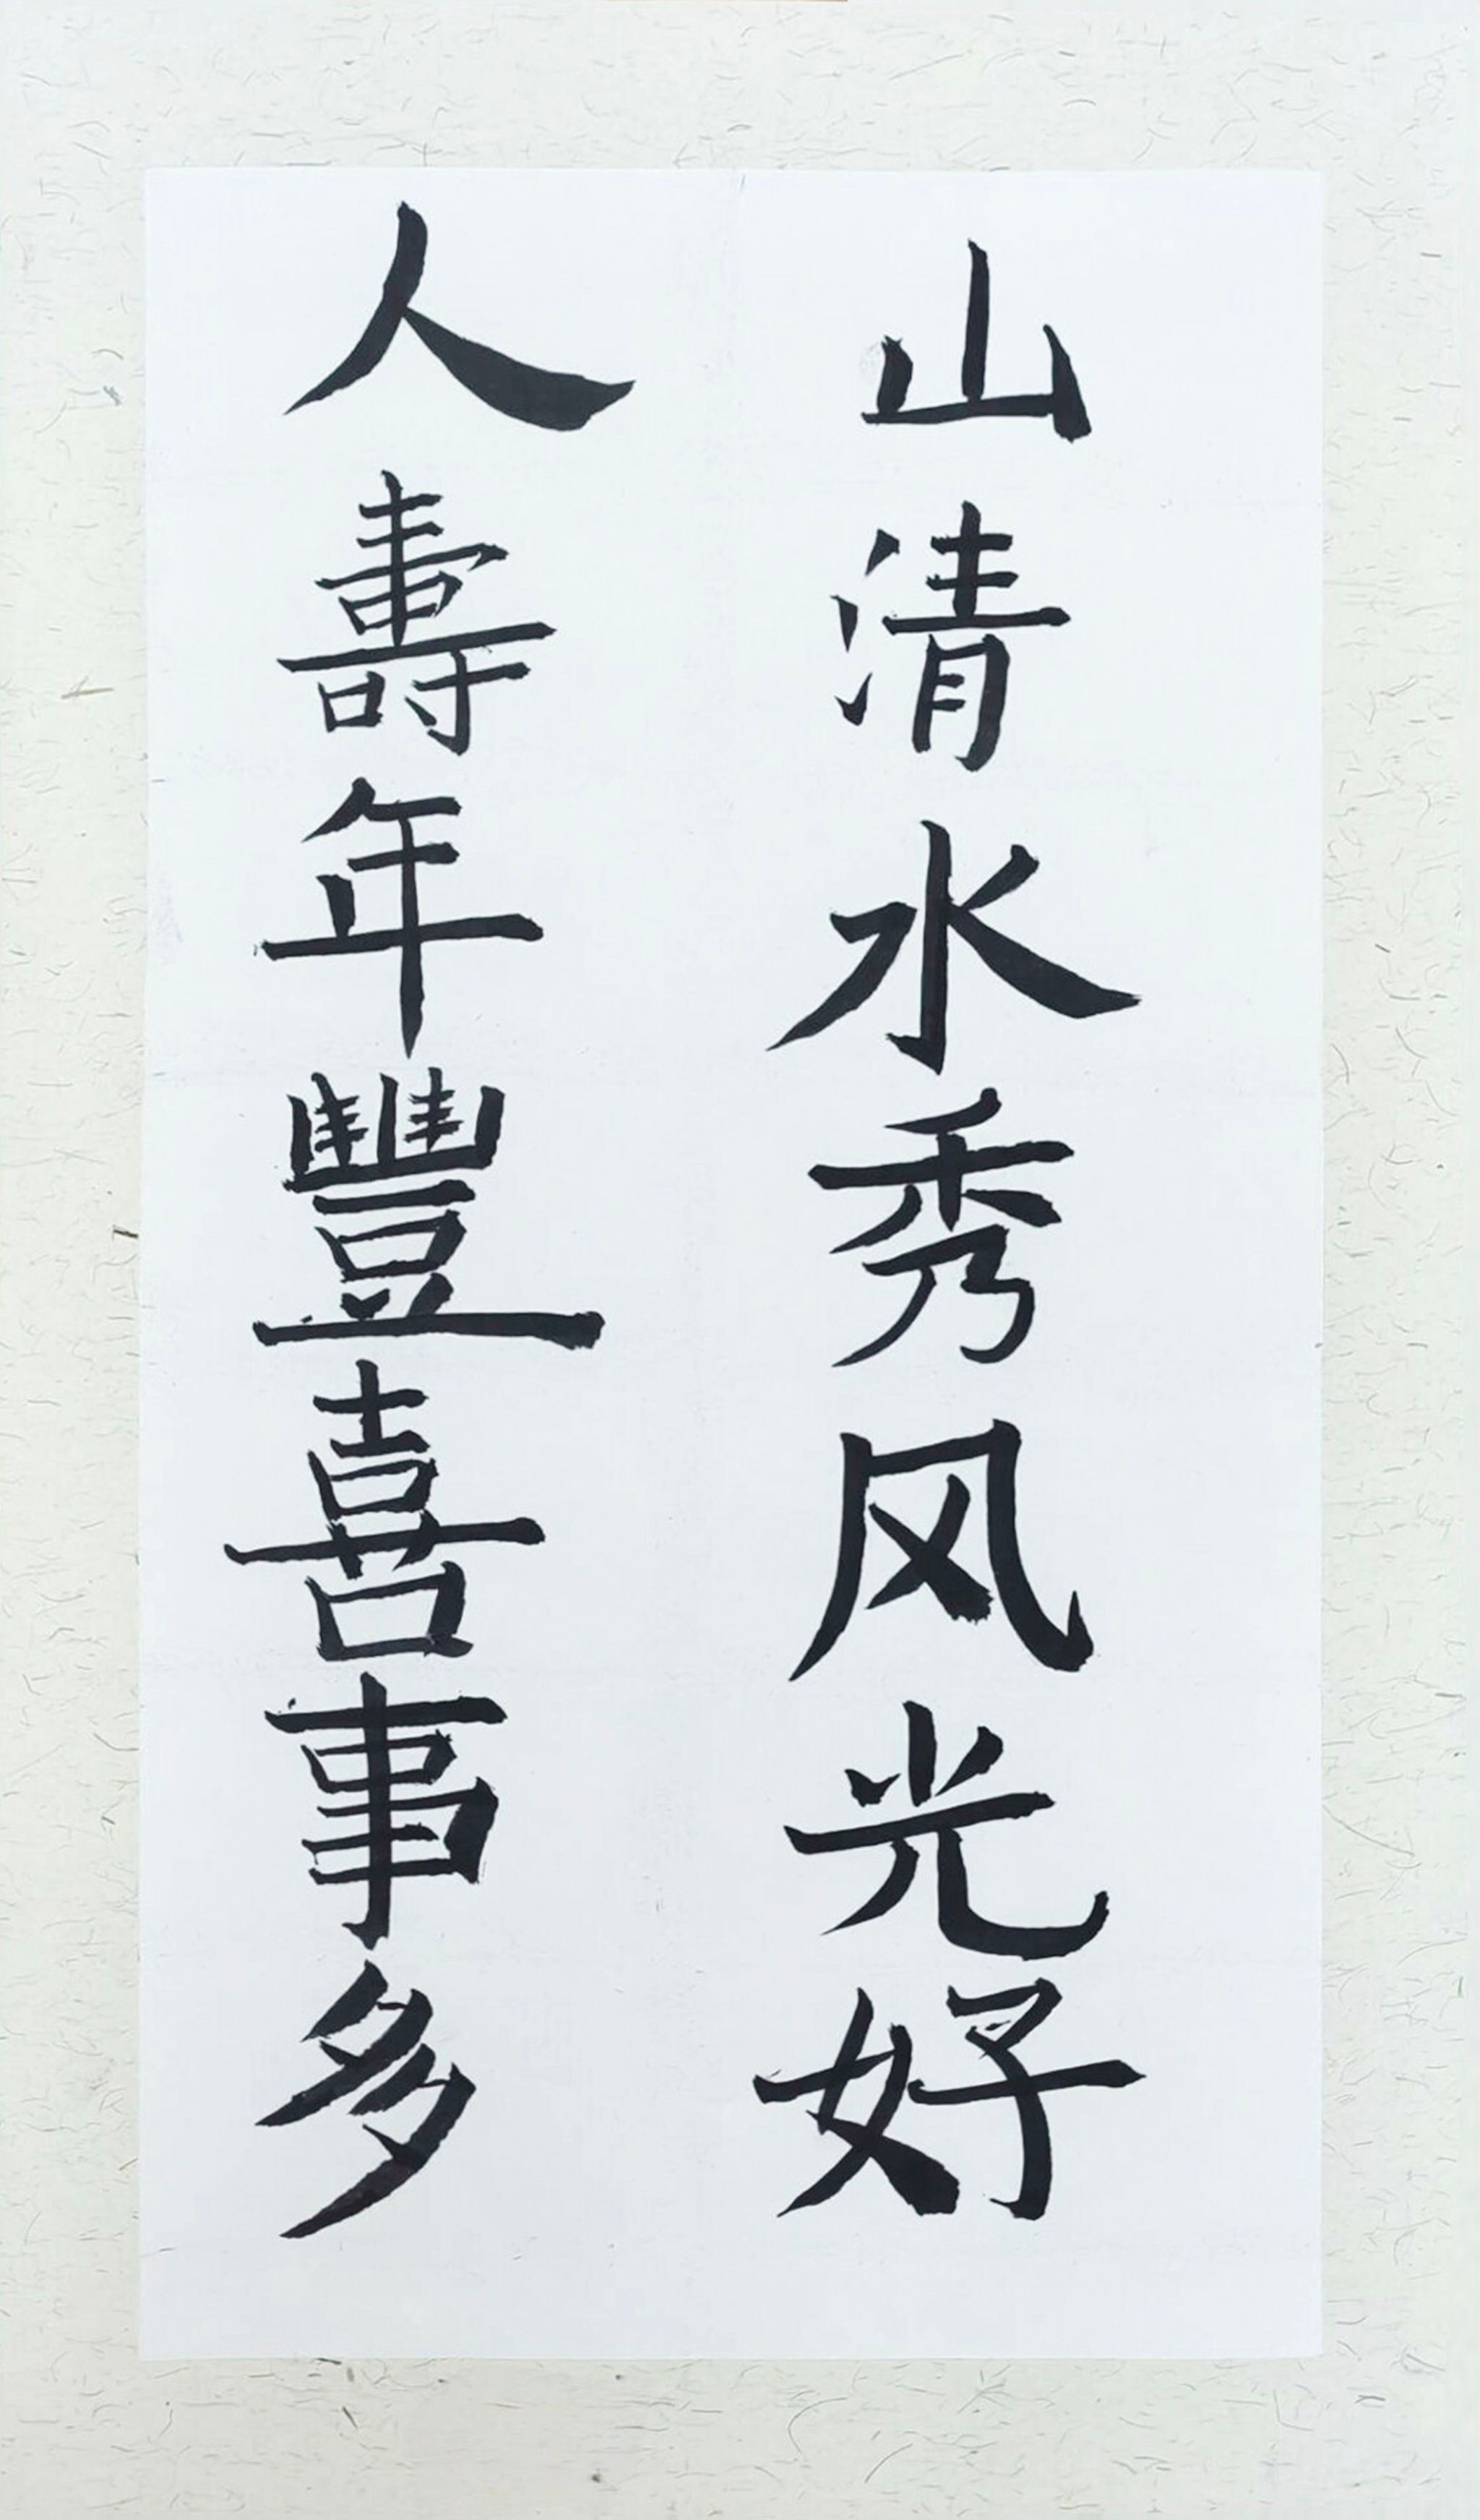 山清水秀风光好
人壽年豐喜事多